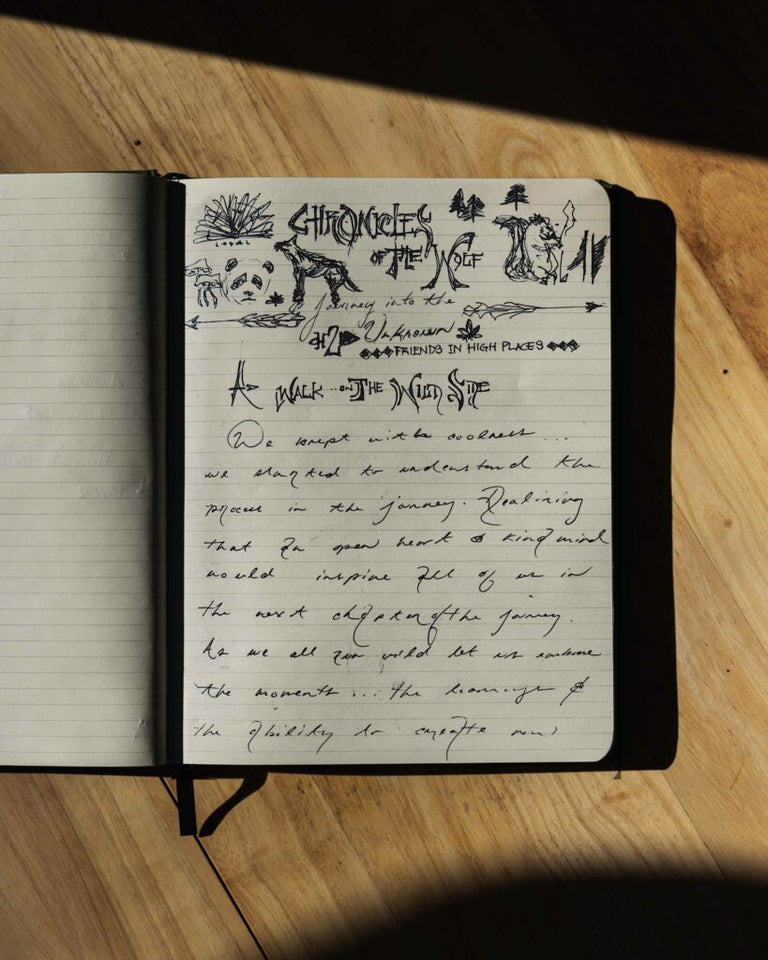 CHRONICLES
OF THE WOLF
Journey into the
Unknown
#2
FRIENDS IN HIGH PLACES
A WALK ON THE WILD SIDE
We with coolness ...
we started to understand the
process in the journey. Realizing
that an open heart & kind mind
would inspire all of us in
the next chapter of the journey.
As we all run wild let us embrace
the moments ... the learnings &
the ability to create new